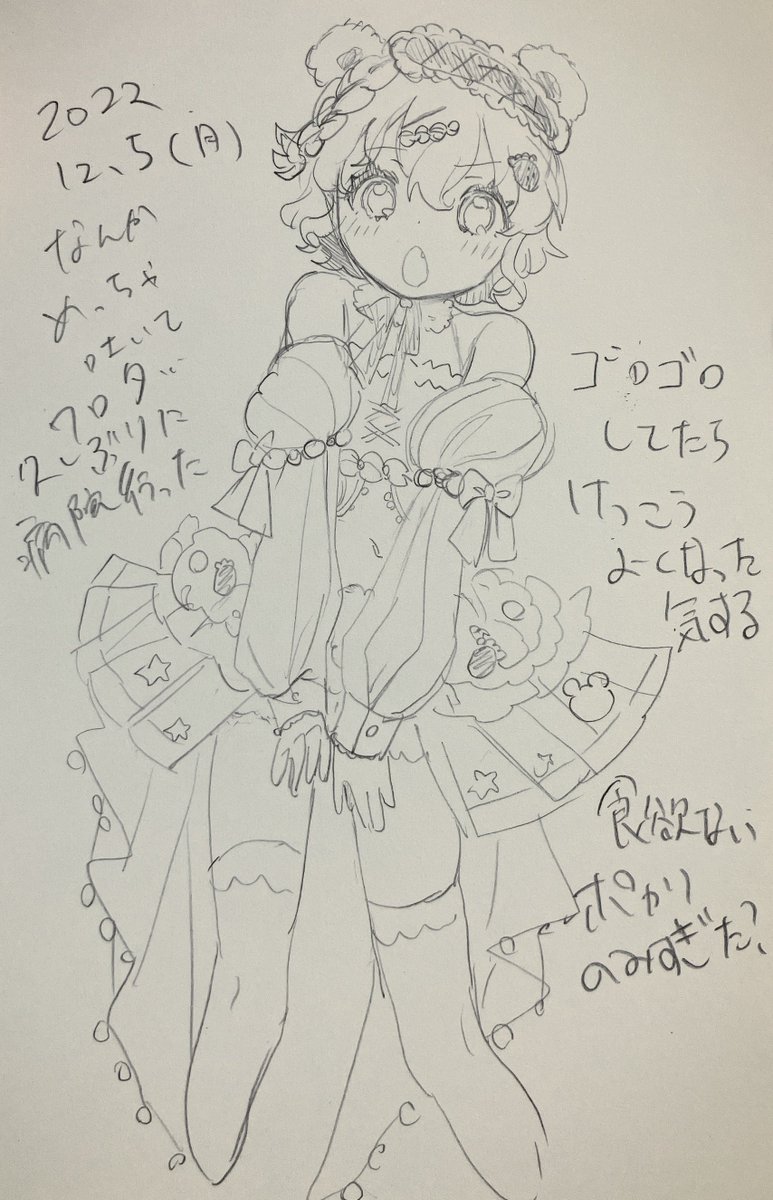 2022
12、5(月)
なんか
めっちゃ
吐いて
クロダ
ぶりに
病院行った
ゴロゴロ
してたら
けっこう
よくなった
気する
食欲ない
ポカリ
のみすぎた?